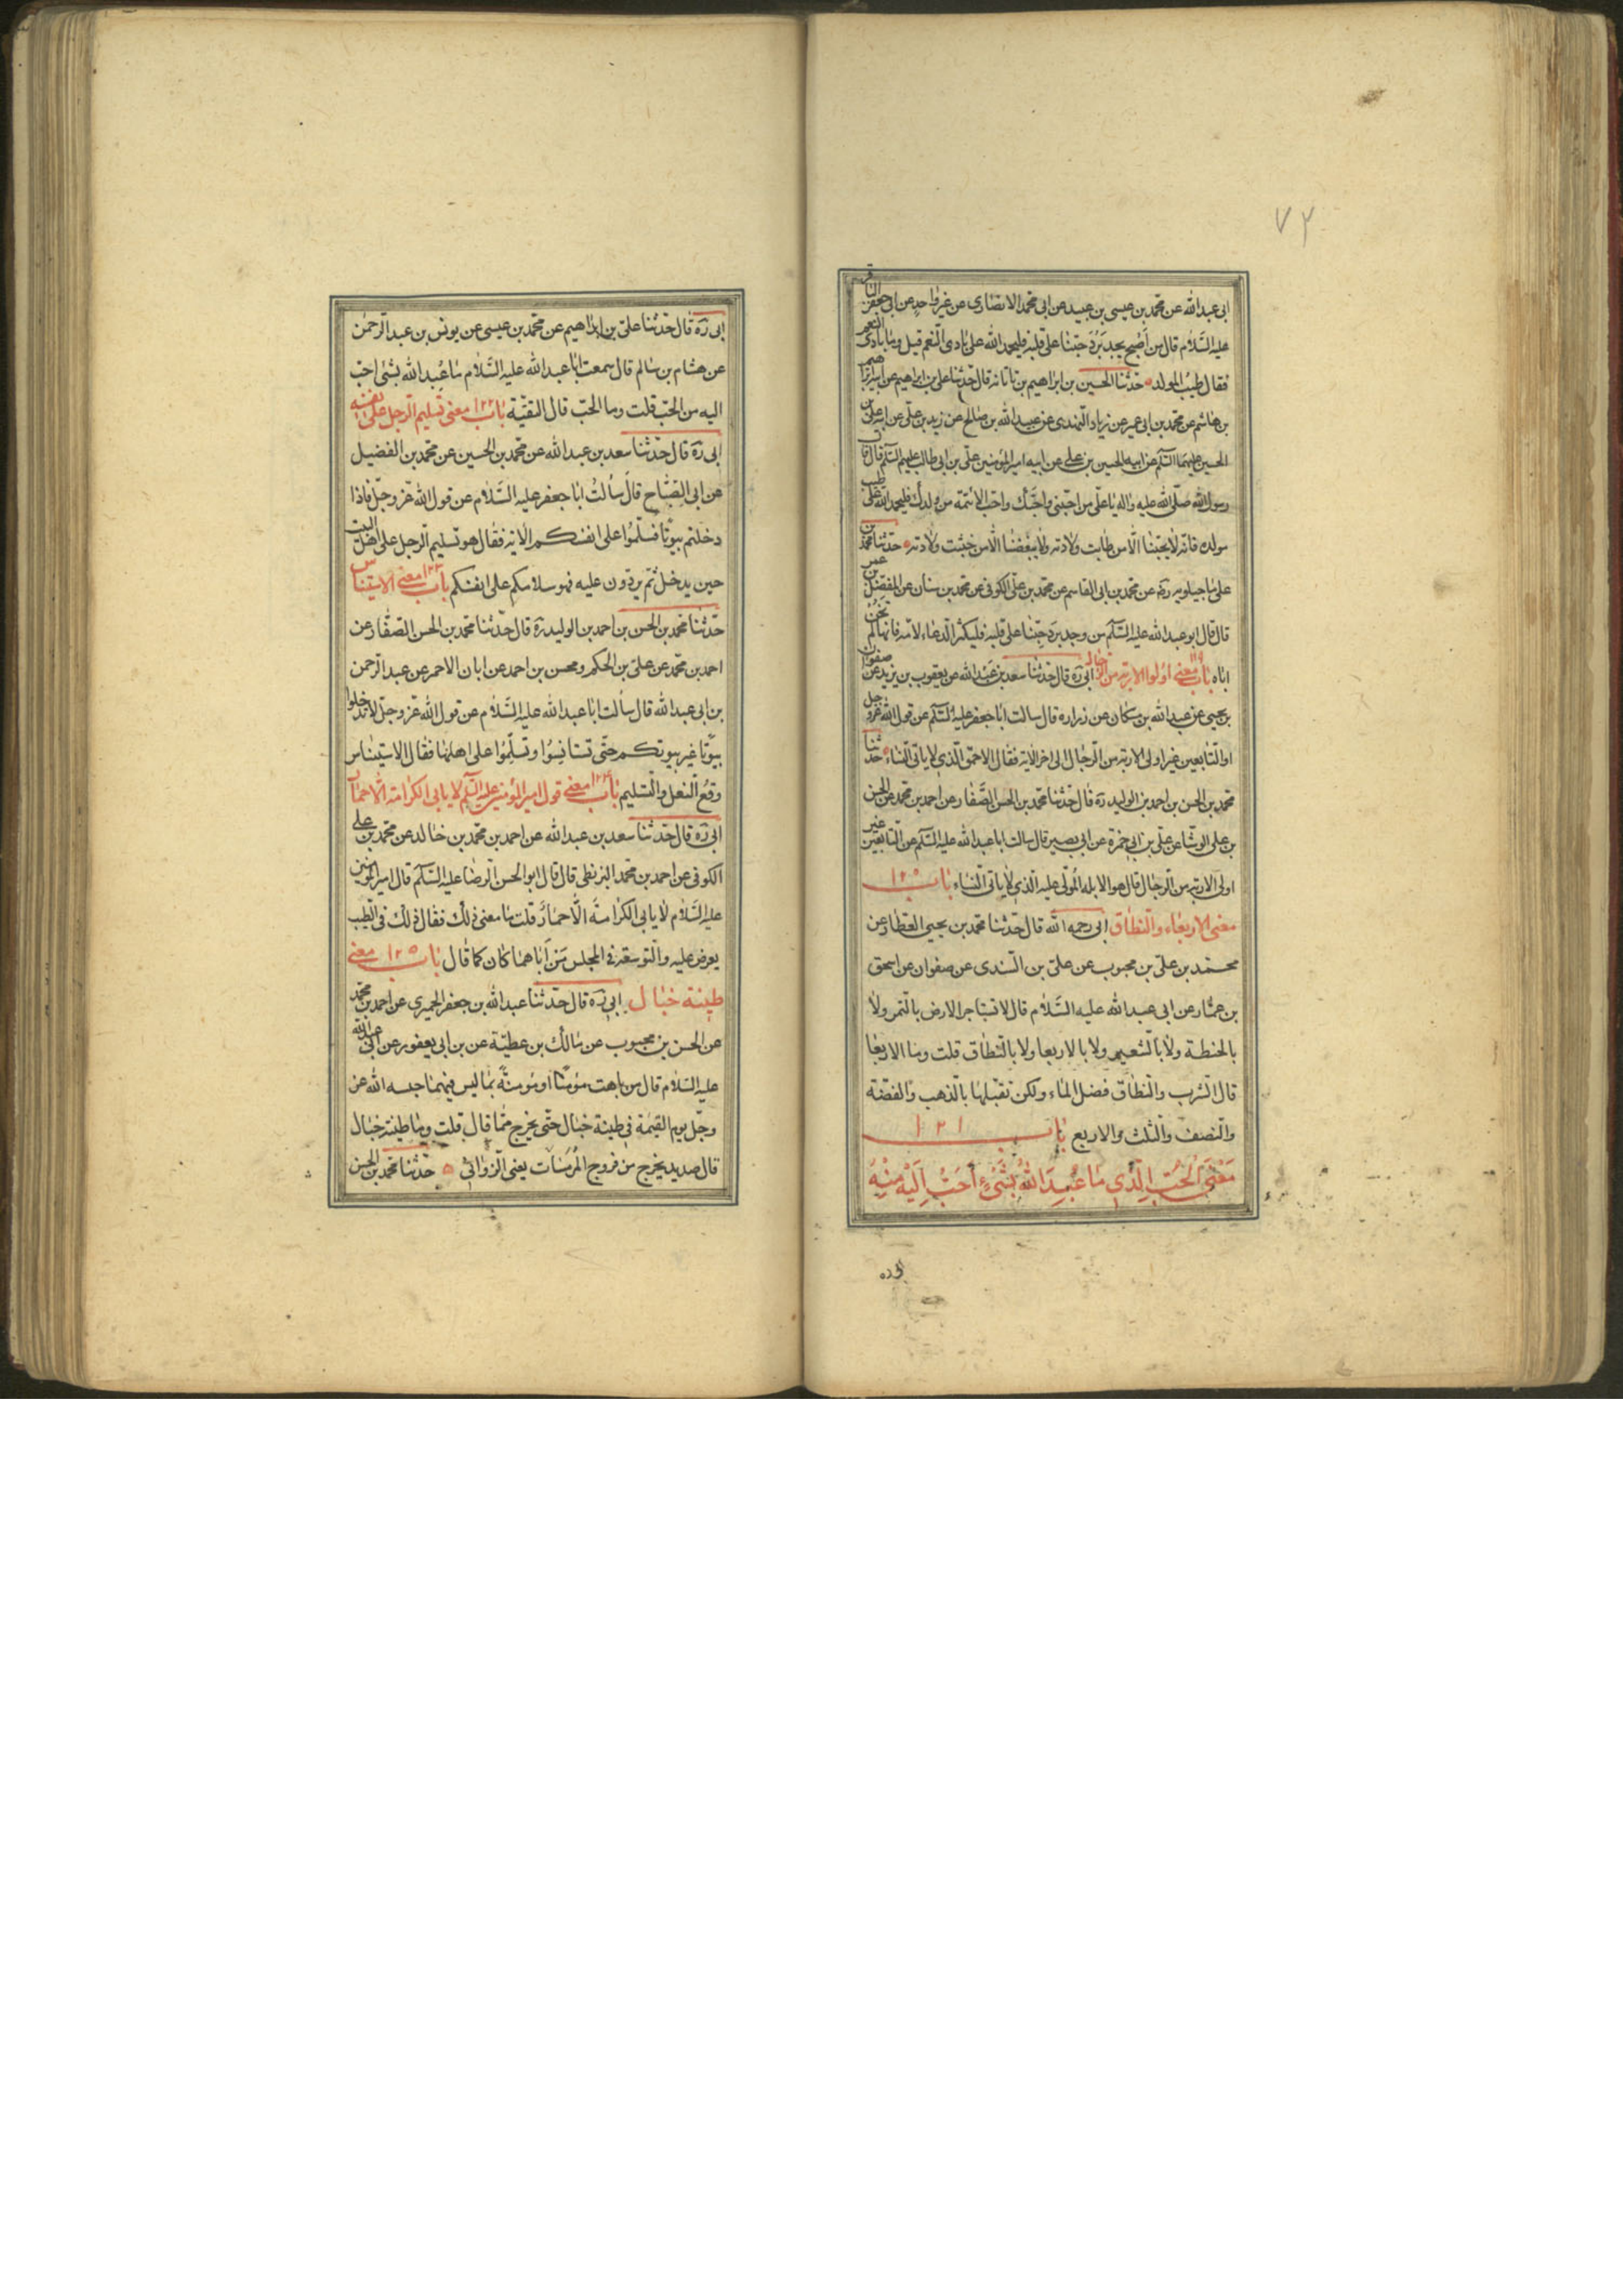 ٧٢
ابى عبدالله عن محمد بن عيسى بن عبيد عن ابى محمد الانصارى عن غير واحد عن ابى جعفر الباقر
عليه السّلام قال من اصبح يجد بَرْدَ حبّنا على قلبه فليحمد الله على بادى النّعم قيل وما بادى النعم
فقال طيبُ المولد حدّثنا الحسين بن ابراهيم بن تاتانه قال حدّثنا على بن ابراهيم عن ابيه ابراهيم
بن هاشم عن محمد بن ابى عمير عن زياد النهدى عن عبيد الله بن صالح عن زيد بن على عن ابيه على بن
الحسين عليهما السّلم عن ابيه الحسين بن على عن ابيه امير المؤمنين علىّ بن ابى طالب عليهم السّلم قال قال
رسول الله صلّى الله عليه واله يا علىّ من احبّنى واحبّك واحبّ الائمّة من ولدك فليحمد الله على طيب
مولده فانّه لا يحبّنا الّا من طابت ولادته ولا يبغضنا الّا من خبثت ولادته حدثنا محمد بن
على ماجيلويه ره عن محمد بن ابى القاسم عن محمد بن علىّ الكوفى عن محمد بن سنان عن المفضل بن عمر
قال قال ابو عبدالله عليه السّلم من وجد برد حبّنا على قلبه فليكثر الدعاء لامّه فانها لم تخن
اباه باب ١١٩ معنى اولوا الاربة من الرجال ابى ره قال حدّثنا سعد بن عبدالله عن يعقوب بن يزيد عن صفوان
بن يحيى عن عبدالله بن مسكان عن زرارة قال سالت ابا جعفر عليه السّلم عن قول الله عز وجل
او التّابعين غير اولى الاربة من الرّجال الى اخر الاية فقال الاحمق الّذى لا ياتى النساء حدّثنا
محمد بن الحسن بن احمد بن الوليد ره قال حدّثنا محمد بن الحسن الصّفار عن احمد بن محمد عن الحسن
بن على الوشّا عن علىّ بن ابى حمزة عن ابى بصير قال سالت ابا عبدالله عليه السّلم عن التابعين غير
اولى الاربة من الرّجال قال هو الابله المُولّى عليه الّذى لا ياتى النّساء باب ١٢٠
معنى الاربعاء والنطاق ابى رحمه الله قال حدّثنا محمد بن يحيى العطار عن
محمد بن علىّ بن محبوب عن علىّ بن السّندى عن صفوان عن اسحق
بن عمّار عن ابى عبدالله عليه السّلام قال لا تستاجر الارض بالتمر ولا
بالحنطة ولا بالشعير ولا بالاربعا ولا بالنّطاق قلت وما الاربعا
قال الشرب والنّطاق فضل الماء ولكن تقبلها بالذهب والفضة
والنّصف والثلث والاربع باب ١٢١
مَعْنَى الْحُبّ الّذى مَا عُبِدَ اللهُ بشَىْءٍ أحَبُّ اِلَيْه مِنْهُ
ابى ره
ابى ره قال حدّثنا علىّ بن ابراهيم عن محمد بن عيسى عن يونس بن عبد الرّحمن
عن هشام بن سالم قال سمعت ابا عبد الله عليه السّلام ما عُبد الله بشئ احبّ
اليه من الحبّ قلت وما الحبّ قال التقيّة باب ١٢٢ معنى تسليم الرجل على نفسه
ابى ره قال حدّثنا سعد بن عبد الله عن محمد بن الحسين عن محمد بن الفضيل
عن ابى الصّبّاح قال سألتُ ابا جعفر عليه السّلام عن قول الله عزّ وجلّ فاذا
دخلتم بيوتًا فسلّموا على انفسكم الاية فقال هو تسليم الرّجل على اهل البيت
حين يدخل ثمّ يردّون عليه فهو سلامكم على انفسكم باب ١٢٣ معنى الاستيناس
حدّثنا محمد بن الحسن بن احمد بن الوليد ره قال حدّثنا محمد بن الحسن الصفّار عن
احمد بن محمّد عن علىّ بن الحكم ومحسن بن احمد عن ابان الاحمر عن عبد الرّحمن
بن ابى عبدالله قال سألت ابا عبد الله عليه السّلام عن قول الله عزّ وجلّ لا تدخلوا
بيوتًا غير بيوتكم حتّى تستانِسُوا وتسلّموا على اهلها فقال الاستيناس
وقعُ النّعل والتسليم باب ١٢٤ معنى قول امير المؤمنين عليه السّلم لا يابى الكرامة الّا حمار
ابى ره قال حدّثنا سعد بن عبد الله عن احمد بن محمد بن خالد عن محمد بن على
الكوفى عن احمد بن محمّد البزنطى قال قال ابو الحسن الرضا عليه السّلم قال امير المومنين
عليه السّلام لا يابى الكرامةَ الّا حمارٌ قلت ما معنى ذلك فقال ذلك فى الطيب
يعرض عليه والتوسعة فى المجلس مَنْ أباهما كان كما قال باب ١٢٥ معنى
طينة خبال ابى ره قال حدّثنا عبدالله بن جعفر الحميرى عن احمد بن محمد
عن الحسن بن محبوب عن مالك بن عطيّة عن بن ابى يعفور عن ابى عبدالله
عليه السّلام قال من باهت مؤمنًا او مؤمنةً بما ليس فيهما حبسه الله عز
وجلّ يوم القيمة فى طينة خبال حتّى يخرج ممّا قال قلت وما طينة خبال
قال صديد يخرج من فروج المُومسَات يعنى الزوانى حدّثنا محمد بن الحسن